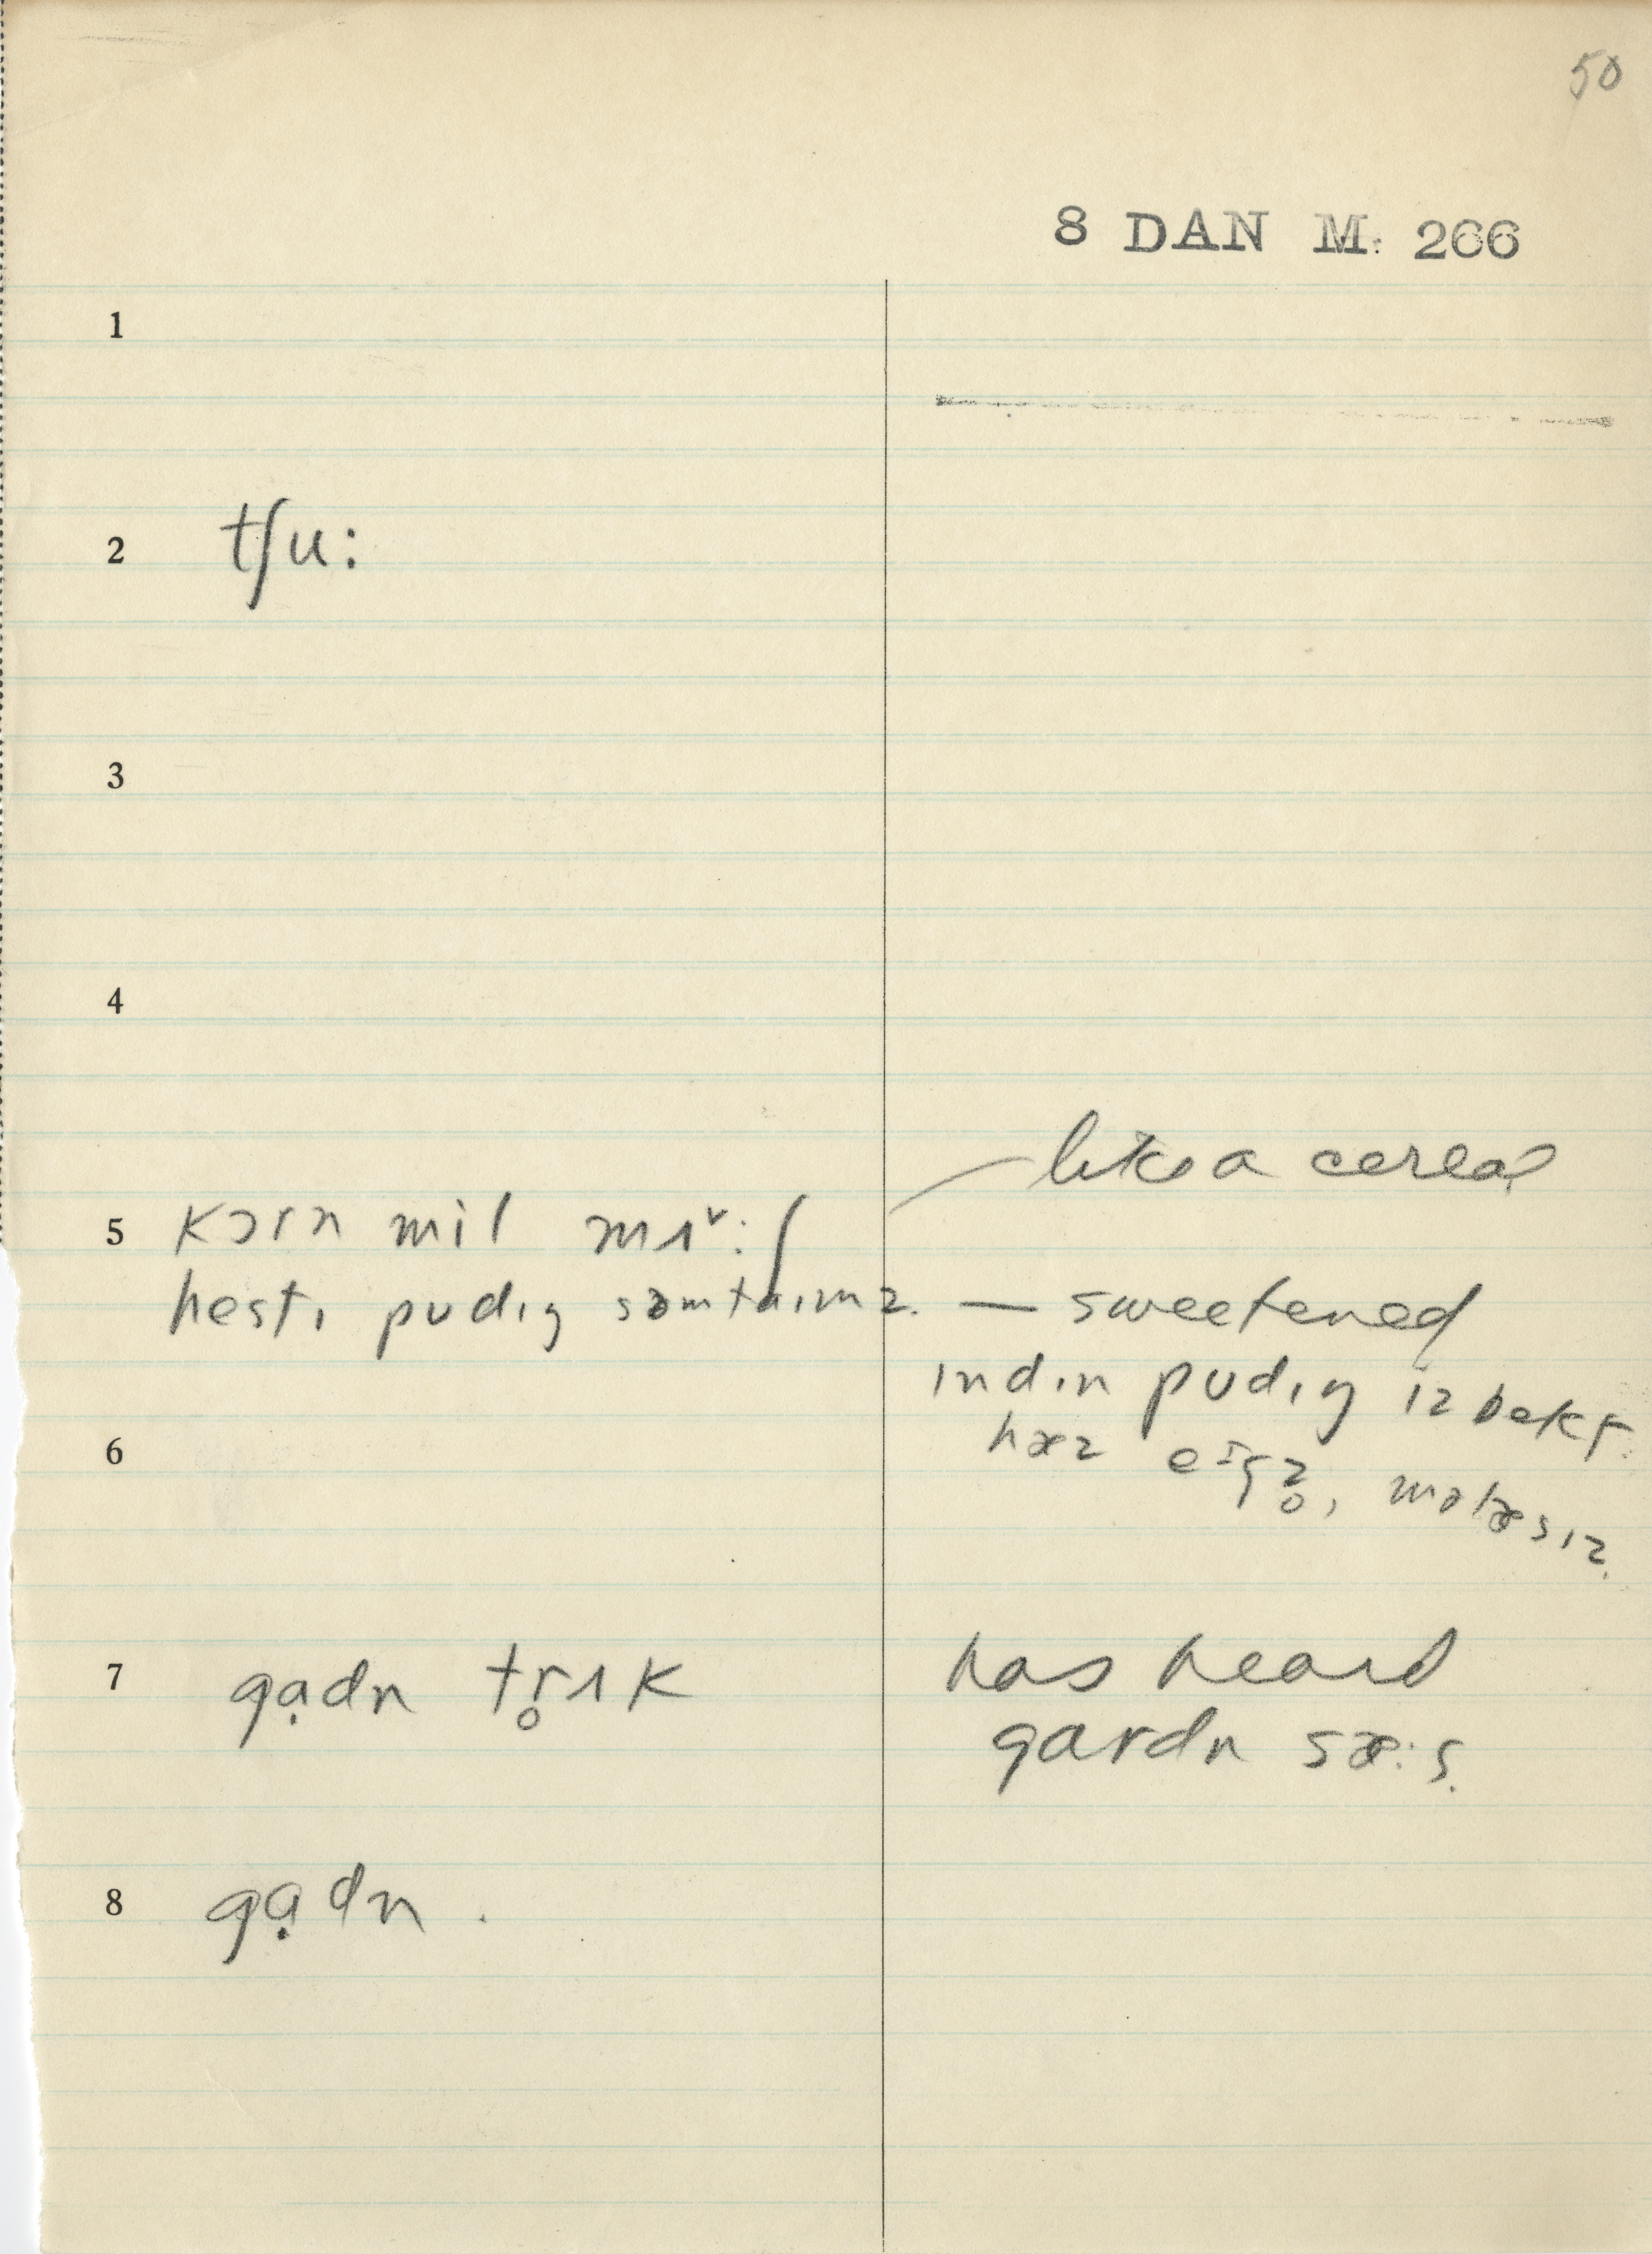 50
8 DAN M. 266
1
2 tʃu:
3
4
like a cereal
5 kɔrn mil mʌˇ:ʃ
hesti pudɪŋ səmtaɪmz. — sweetened
ɪndɪn pudɪŋ ɪz bekt.
6 hæz eɪgz̥, molæsɪz.
7 gạdn tr̥ʌk has heard
gardn sæ:s.
8 gạdn.